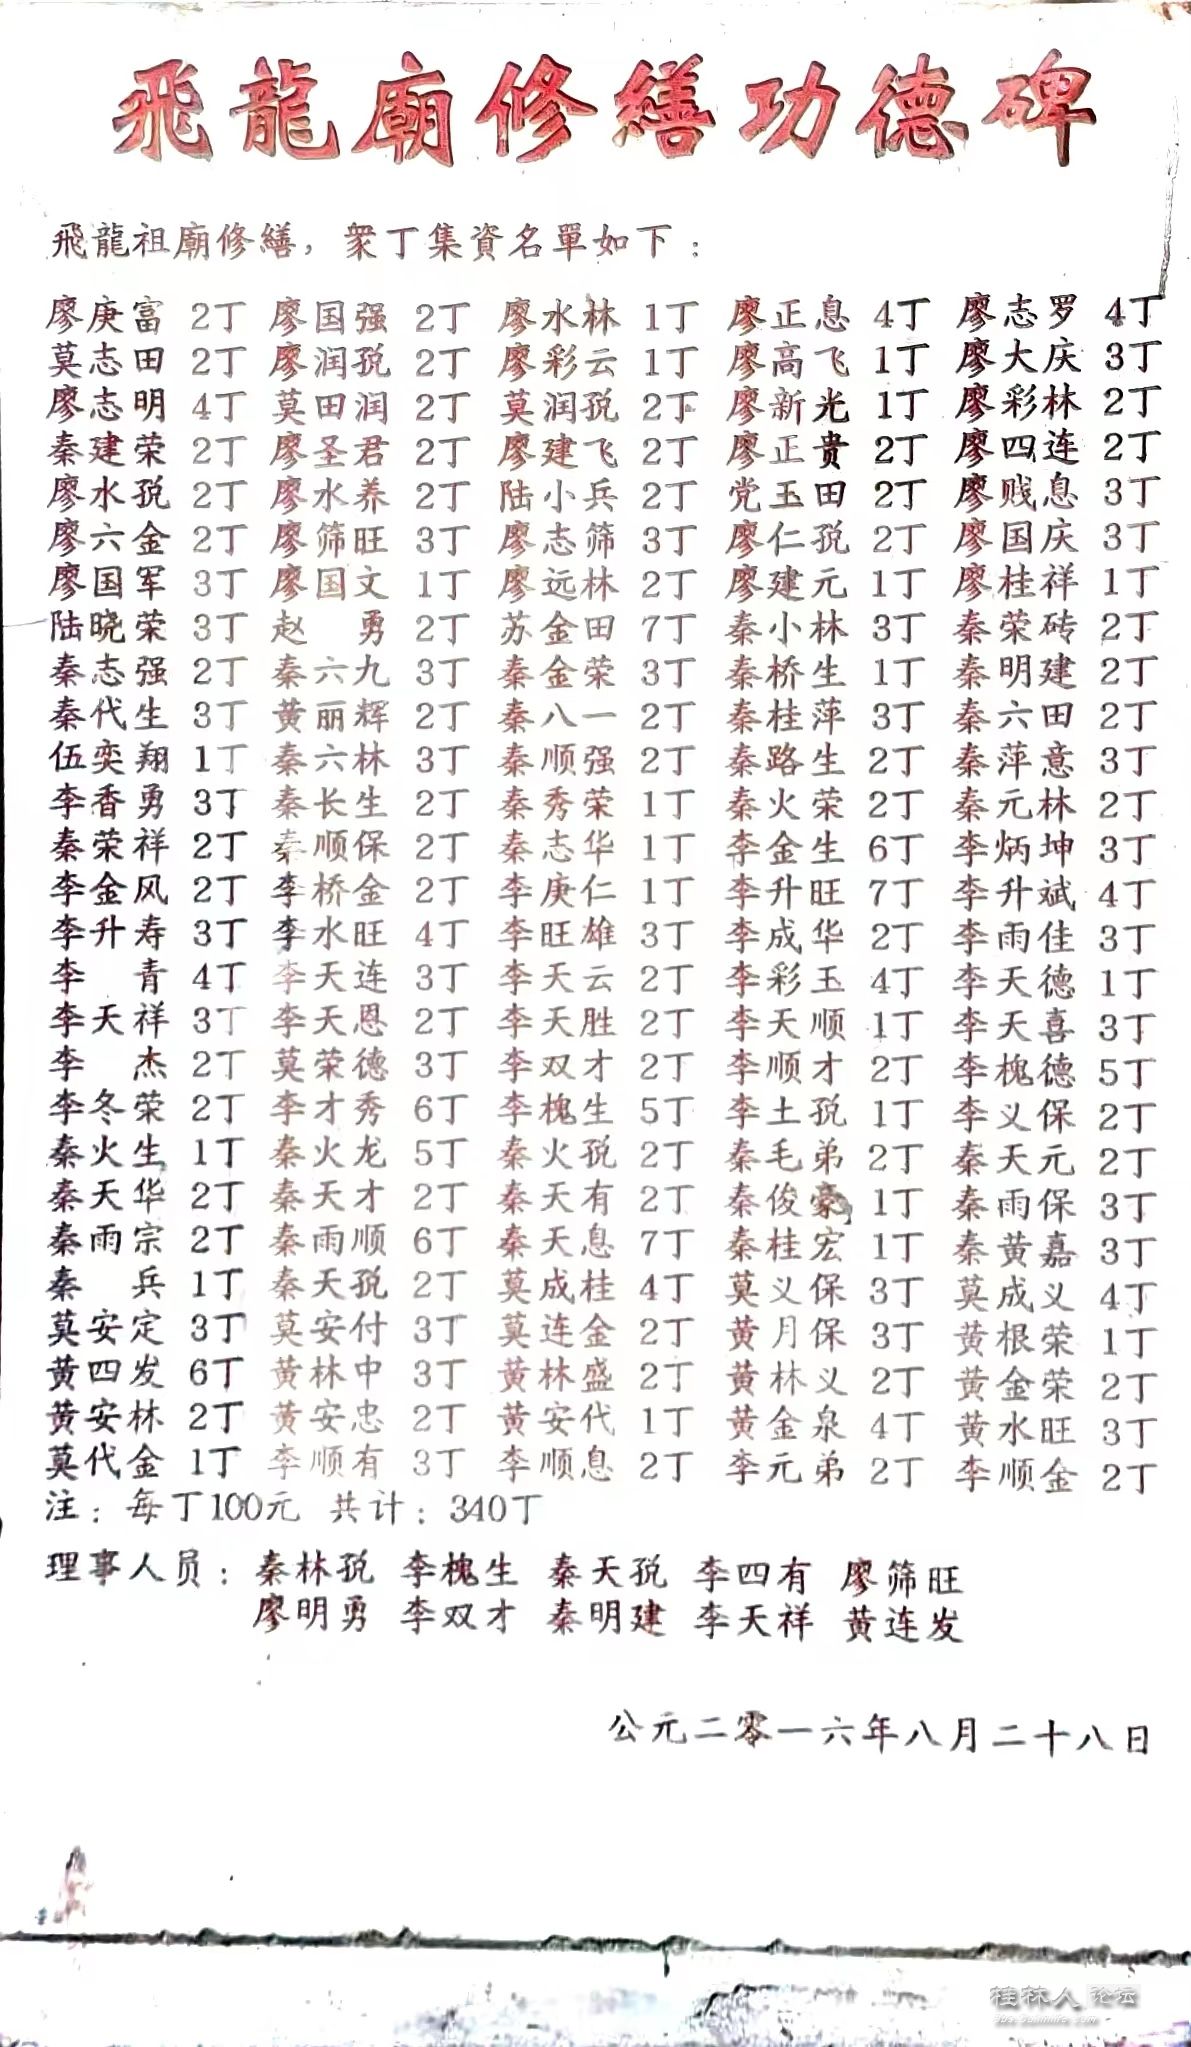 飛龍廟修繕功德碑
飛龍祖廟修繕，衆丁集資名單如下：
廖庚富 2丁 廖国强 2丁 廖水林 1丁 廖正息 4丁 廖志罗 4丁
莫志田 2丁 廖润孨 2丁 廖彩云 1丁 廖高飞 1丁 廖大庆 3丁
廖志明 4丁 莫田润 2丁 莫润 2丁 廖新光 1丁 廖彩林 2丁
秦建荣 2丁 廖圣君 2丁 廖建飞 2丁 廖正贵 2丁 廖四连 2丁
廖水 2丁 廖水养 2丁 陆小兵 2丁 党玉田 2丁 廖贱息 3丁
廖六金 2丁 廖筛旺 3丁 廖志筛 3丁 廖仁 2丁 廖国庆 3丁
廖国军 3丁 廖国文 1丁 廖远林 2丁 廖建元 1丁 廖桂祥 1丁
陆晓荣 3丁 赵 勇 2丁 苏金田 7丁 秦小林 3丁 秦荣砖 2丁
秦志强 2丁 秦六九 3丁 秦金荣 3丁 秦桥生 1丁 秦明建 2丁
秦代生 3丁 黄丽辉 2丁 秦八一 2丁 秦桂萍 3丁 秦六田 2丁
伍奕翔 1丁 秦六林 3丁 秦顺强 2丁 秦路生 2丁 秦萍意 3丁
李香勇 3丁 秦长生 2丁 秦秀荣 1丁 秦火荣 2丁 秦元林 2丁
秦荣祥 2丁 秦顺保 2丁 秦志华 1丁 李金生 6丁 李炳坤 3丁
李金风 2丁 李桥金 2丁 李庚仁 1丁 李升旺 7丁 李升斌 4丁
李升寿 3丁 李水旺 4丁 李旺雄 3丁 李成华 2丁 李雨佳 3丁
李 青 4丁 李天连 3丁 李天云 2丁 李彩玉 4丁 李天德 1丁
李天祥 3丁 李天恩 2丁 李天胜 2丁 李天顺 1丁 李天喜 3丁
李 杰 2丁 莫荣德 3丁 李双才 2丁 李顺才 2丁 李槐德 5丁
李冬荣 2丁 李才秀 6丁 李槐生 5丁 李土 1丁 李义保 2丁
秦火生 1丁 秦火龙 5丁 秦火 2丁 秦毛弟 2丁 秦天元 2丁
秦天华 2丁 秦天才 2丁 秦天有 2丁 秦俊豪 1丁 秦雨保 3丁
秦雨宗 2丁 秦雨顺 6丁 秦天息 7丁 秦桂宏 1丁 秦黄嘉 3丁
秦 兵 1丁 秦天 2丁 莫成桂 4丁 莫义保 3丁 莫成义 4丁
莫安定 3丁 莫安付 3丁 莫连金 2丁 黄月保 3丁 黄根荣 1丁
黄四发 6丁 黄林中 3丁 黄林盛 2丁 黄林义 2丁 黄金荣 2丁
黄安林 2丁 黄安忠 2丁 黄安代 1丁 黄金泉 4丁 黄水旺 3丁
莫代金 1丁 李顺有 3丁 李顺息 2丁 李元弟 2丁 李顺金 2丁
注：每丁100元 共计：340丁
理事人员：秦林 李槐生 秦天 李四有 廖筛旺
廖明勇 李双才 秦明建 李天祥 黄连发
公元二零一六年八月二十八日
桂林人 论坛